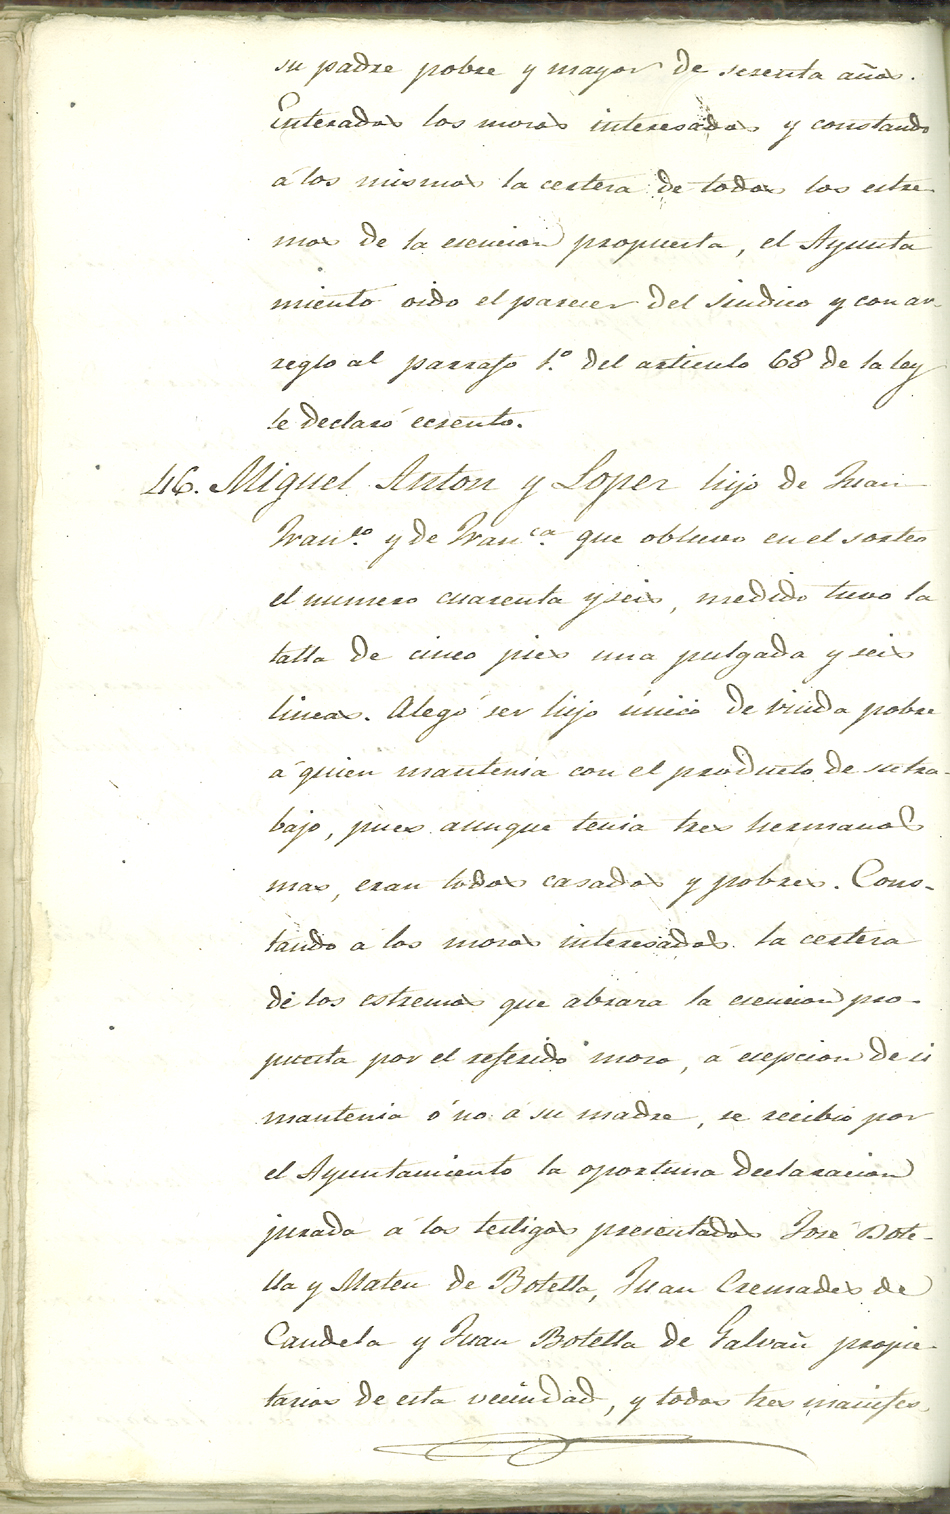 su padre pobre y mayor de sesenta años.
Enterados los mozos interesados y constando
á los mismos la certeza de todos los estre-
mos de la esencion propuesta, el Ayunta
miento oido el parecer del Sindico y con ar-
reglo al parrafo 1.º del articulo 68 de la ley
le declaró ecsento.
46. Miguel Anton y Lopez hijo de Juan
Fran.co y de Fran.ca que obtuvo en el sorteo
el numero cuarenta y seis, medido tuvo la
talla de cinco pies una pulgada y seis
lineas. Alegó ser hijo único de viuda pobre
á quien mantenia con el producto de su tra-
bajo, pues aunque tenia tres hermanos
mas, eran todos casados y pobres. Cons-
tando a los mozos interesados la certeza
de los estremos que abraza la esencion pro-
puesta por el referido mozo, á esepcion de si
mantenia ó no á su madre, se recibio por
el Ayuntamiento la oportuna declaracion
jurada á los testigos presentados José Bote-
lla y Mateu de Botella, Juan Cremades de
Candela y Juan Botella de Galvañ propie-
tarios de esta vecindad, y todos tres manifes-